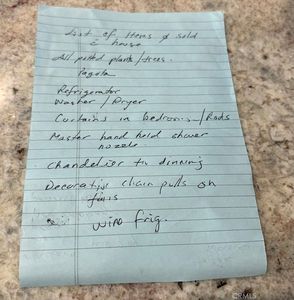 List of Items ø sold
c house
All potted plants/trees.
Pagola
Refrigerator
Washer/Dryer
Curtains in bedrooms/Rods
Master hand held shower
nozzle
Chandelier in dinning
Decorative chain pulls on
fans
wine frig.
CRMLS